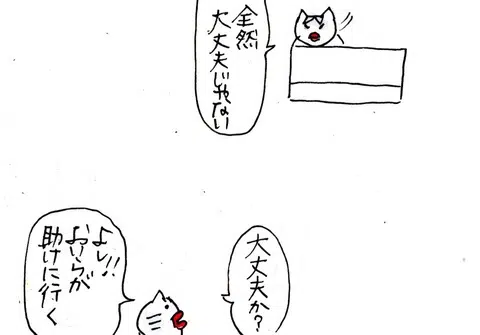 全然
大丈夫じゃない
大丈夫か?
よし!!
おいらが
助けに行く